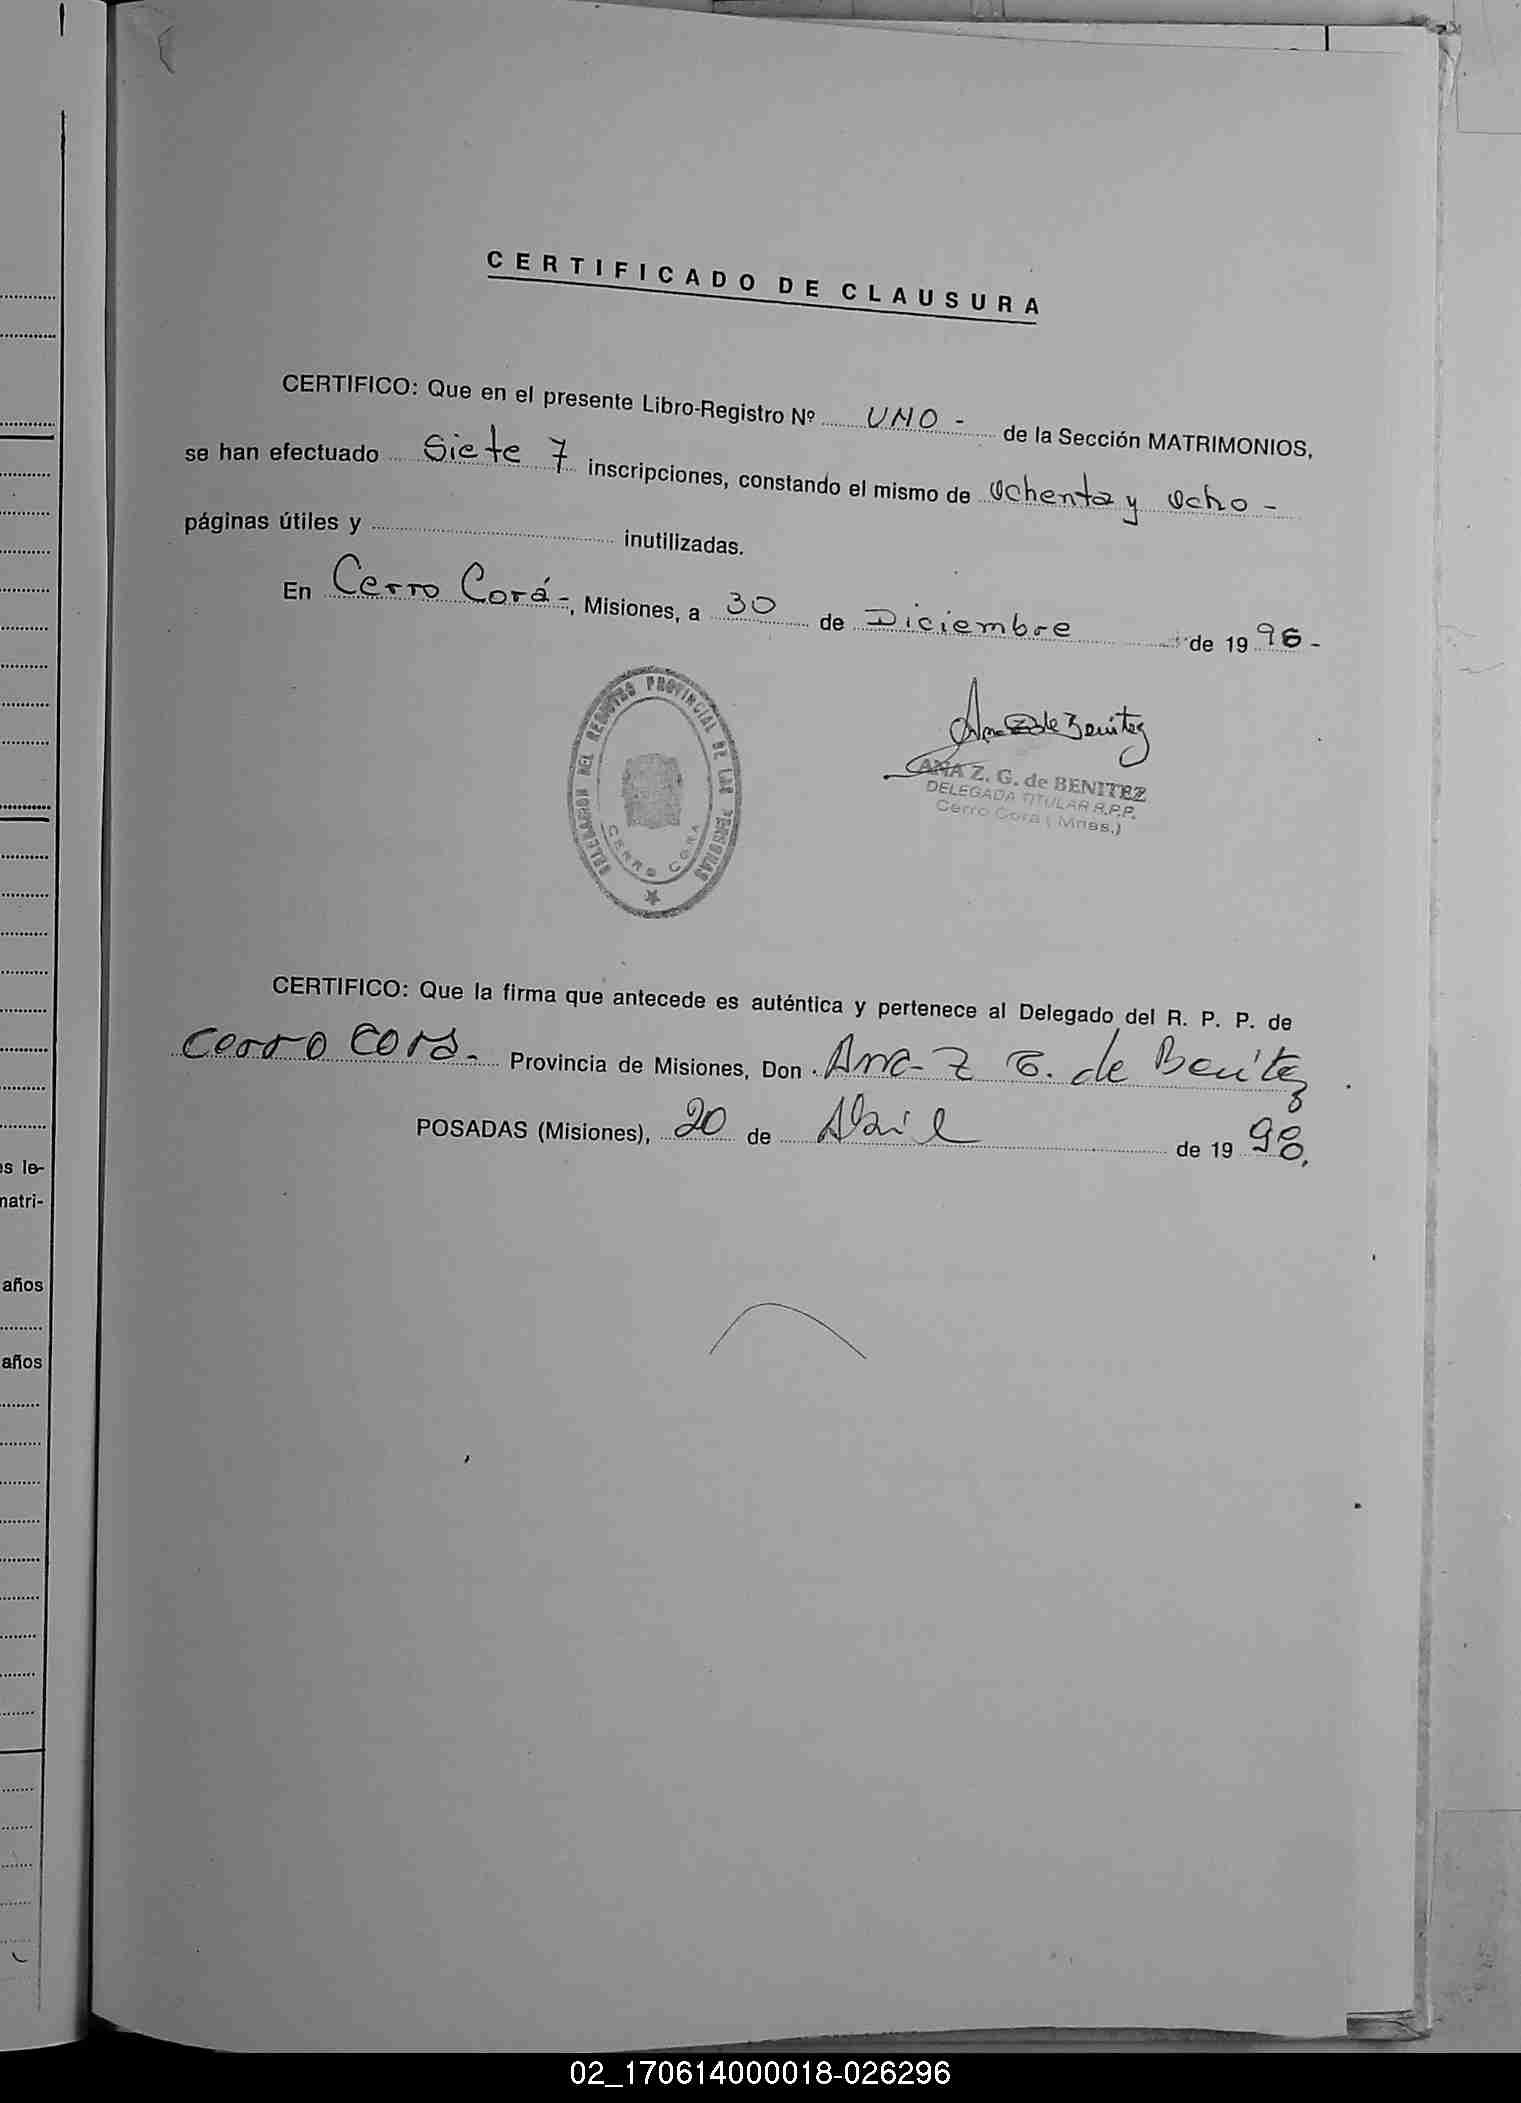 CERTIFICADO DE CLAUSURA
CERTIFICO: Que en el presente Libro-Registro Nº UNO - de la Sección MATRIMONIOS,
se han efectuado Siete 7 inscripciones, constando el mismo de Ochenta y Ocho -
páginas útiles y inutilizadas.
En Cerro Corá-, Misiones, a 30 de Diciembre de 19 96-
DELEGACION DEL REGISTRO PROVINCIAL DE LAS PERSONAS
CERRO CORA
Ana Z de Benitez
ANA Z. G. de BENITEZ
DELEGADA TITULAR R.P.P.
Cerro Cora ( Mnes.)
CERTIFICO: Que la firma que antecede es auténtica y pertenece al Delegado del R. P. P. de
Cerro Corá- Provincia de Misiones, Don Ana- Z G. de Benitez
POSADAS (Misiones), 20 de Abril de 19 98.
s le-
natri-
años
años
02_170614000018-026296